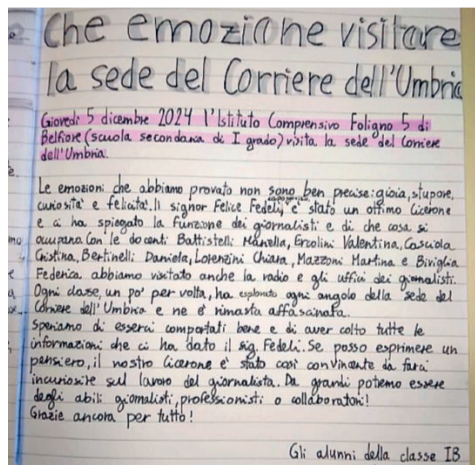 Che emozione visitare
la sede del Corriere dell'Umbria
Giovedì 5 dicembre 2024 l'Istituto Comprensivo Foligno 5 di
Belfiore (scuola secondaria di I grado) visita la sede del Corriere
dell'Umbria.
Le emozioni che abbiamo provato non sono ben precise: gioia, stupore,
curiosità e felicità. Il signor Felice Fedeli, è stato un ottimo Cicerone
e ci ha spiegato la funzione dei giornalisti e di che cosa si
occupano. Con le docenti Battistelli Mariella, Ercolini Valentina, Casciola
Cristina, Bertinelli Daniela, Lorenzini Chiara, Mazzoni Martina e Biviglia
Federica abbiamo visitato anche la radio e gli uffici dei giornalisti.
Ogni classe, un po' per volta, ha esplorato ogni angolo della sede del
Corriere dell'Umbria e ne è rimasta affascinata.
Speriamo di esserci comportati bene e di aver colto tutte le
informazioni che ci ha dato il sig. Fedeli. Se posso esprimere un
pensiero, il nostro Cicerone è stato così convincente da farci
incuriosire sul lavoro del giornalista. Da grandi potremo essere
degli abili giornalisti, professionisti o collaboratori!
Grazie ancora per tutto!
Gli alunni della classe IB